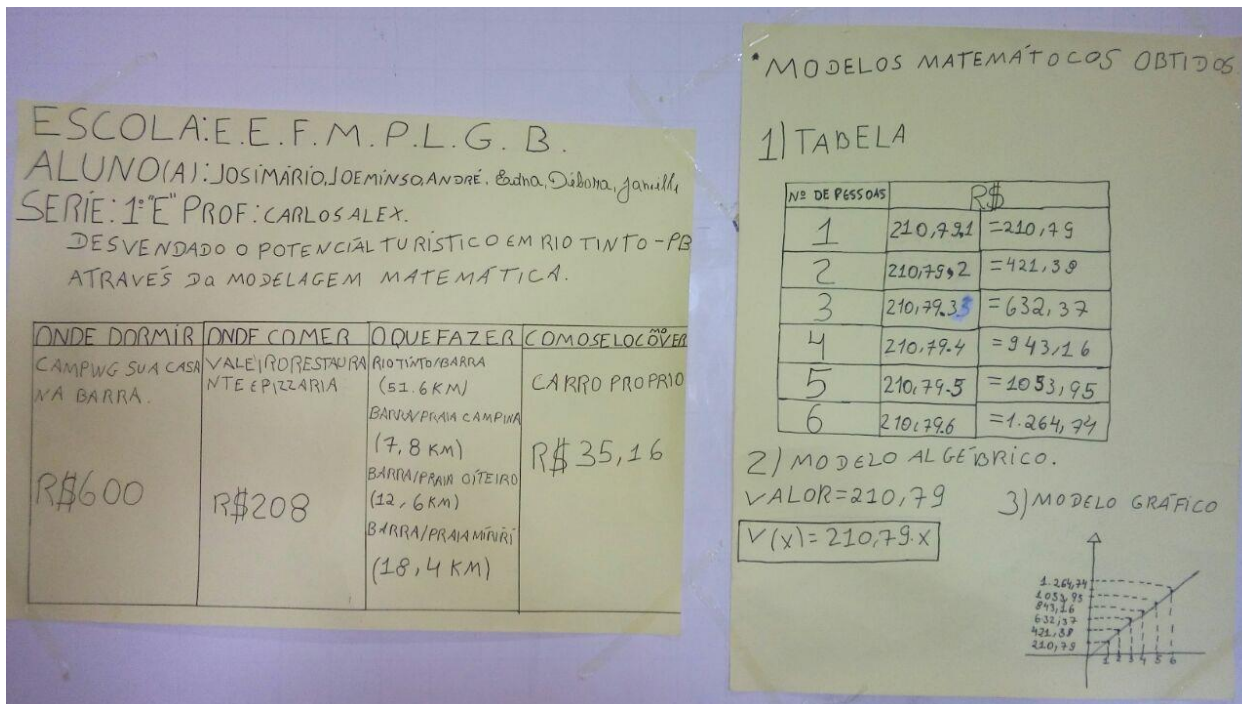 ESCOLA: E.E.F.M.P.L.G.B.
ALUNO(A): JOSIMÁRIO, JOEMINSO, ANDRÉ. Edna, Débora, Jamilly
SERIE: 1º "E" PROF: CARLOS ALEX.
DESVENDADO O POTENCIAL TURÍSTICO EM RIO TINTO - PB
ATRAVÉS Da MODELAGEM MATEMÁTICA.
ONDE DORMIR
CAMPWG SUA CASA
NA BARRA.
R$600
ONDE COMER
VALEIRO RESTAURA
NTE E PIZZARIA
R$208
O QUE FAZER
RIO TINTO/BARRA
(51.6KM)
BARRA/PRAIA CAMPINA
(7,8 KM)
BARRA/PRAIA OITEIRO
(12,6KM)
BARRA/PRAIA MIRIRI
(18,4 KM)
COMO SE LOCOMOVER
CARRO PROPRIO
R$ 35,16
• MODELOS MATEMÁTOCOS OBTIDOS
1) TABELA
Nº DE PESSOAS R$
1 210,79.1 =210,79
2 210,79.2 =421,39
3 210,79.33 =632,37
4 210,79.4 =943,16
5 210,79.5 =1053,95
6 210,79.6 =1.264,74
2) MODELO ALGÉBRICO.
VALOR=210,79
V(x)=210,79.x
3) MODELO GRÁFICO
1.264,74
1053,95
843,16
632,37
421,38
210,79
1 2 3 4 5 6